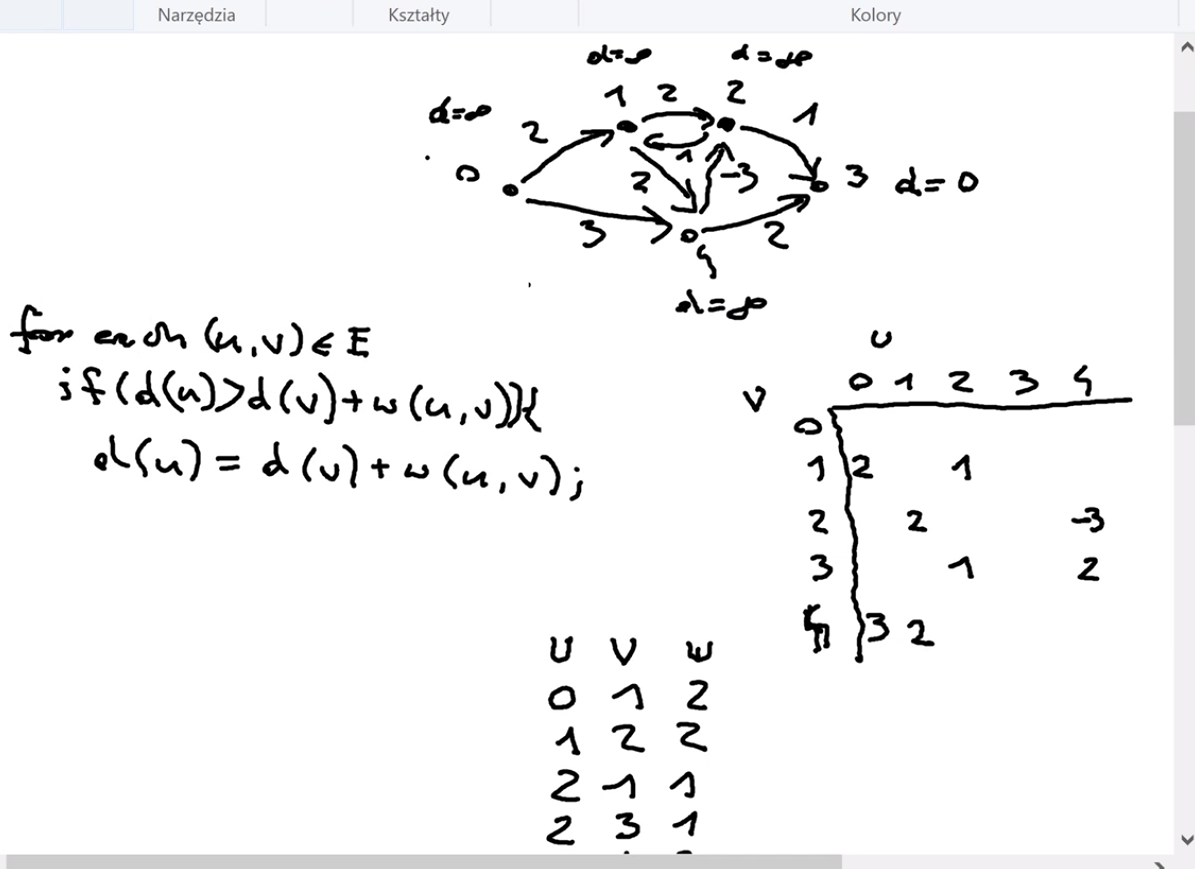 Narzędzia Kształty Kolory
d=∞ d=∞
d=∞ 2 1 2 2 1
0 2 1 -3 3 d=0
3 4 2
d=∞
for each (u,v)∈E
if(d(u)>d(v)+w(u,v)){
d(u) = d(v)+w(u,v);
U
V 0 1 2 3 4
0
1 2 1
2 2 -3
3 1 2
4 3 2
U V W
0 1 2
1 2 2
2 1 1
2 3 1